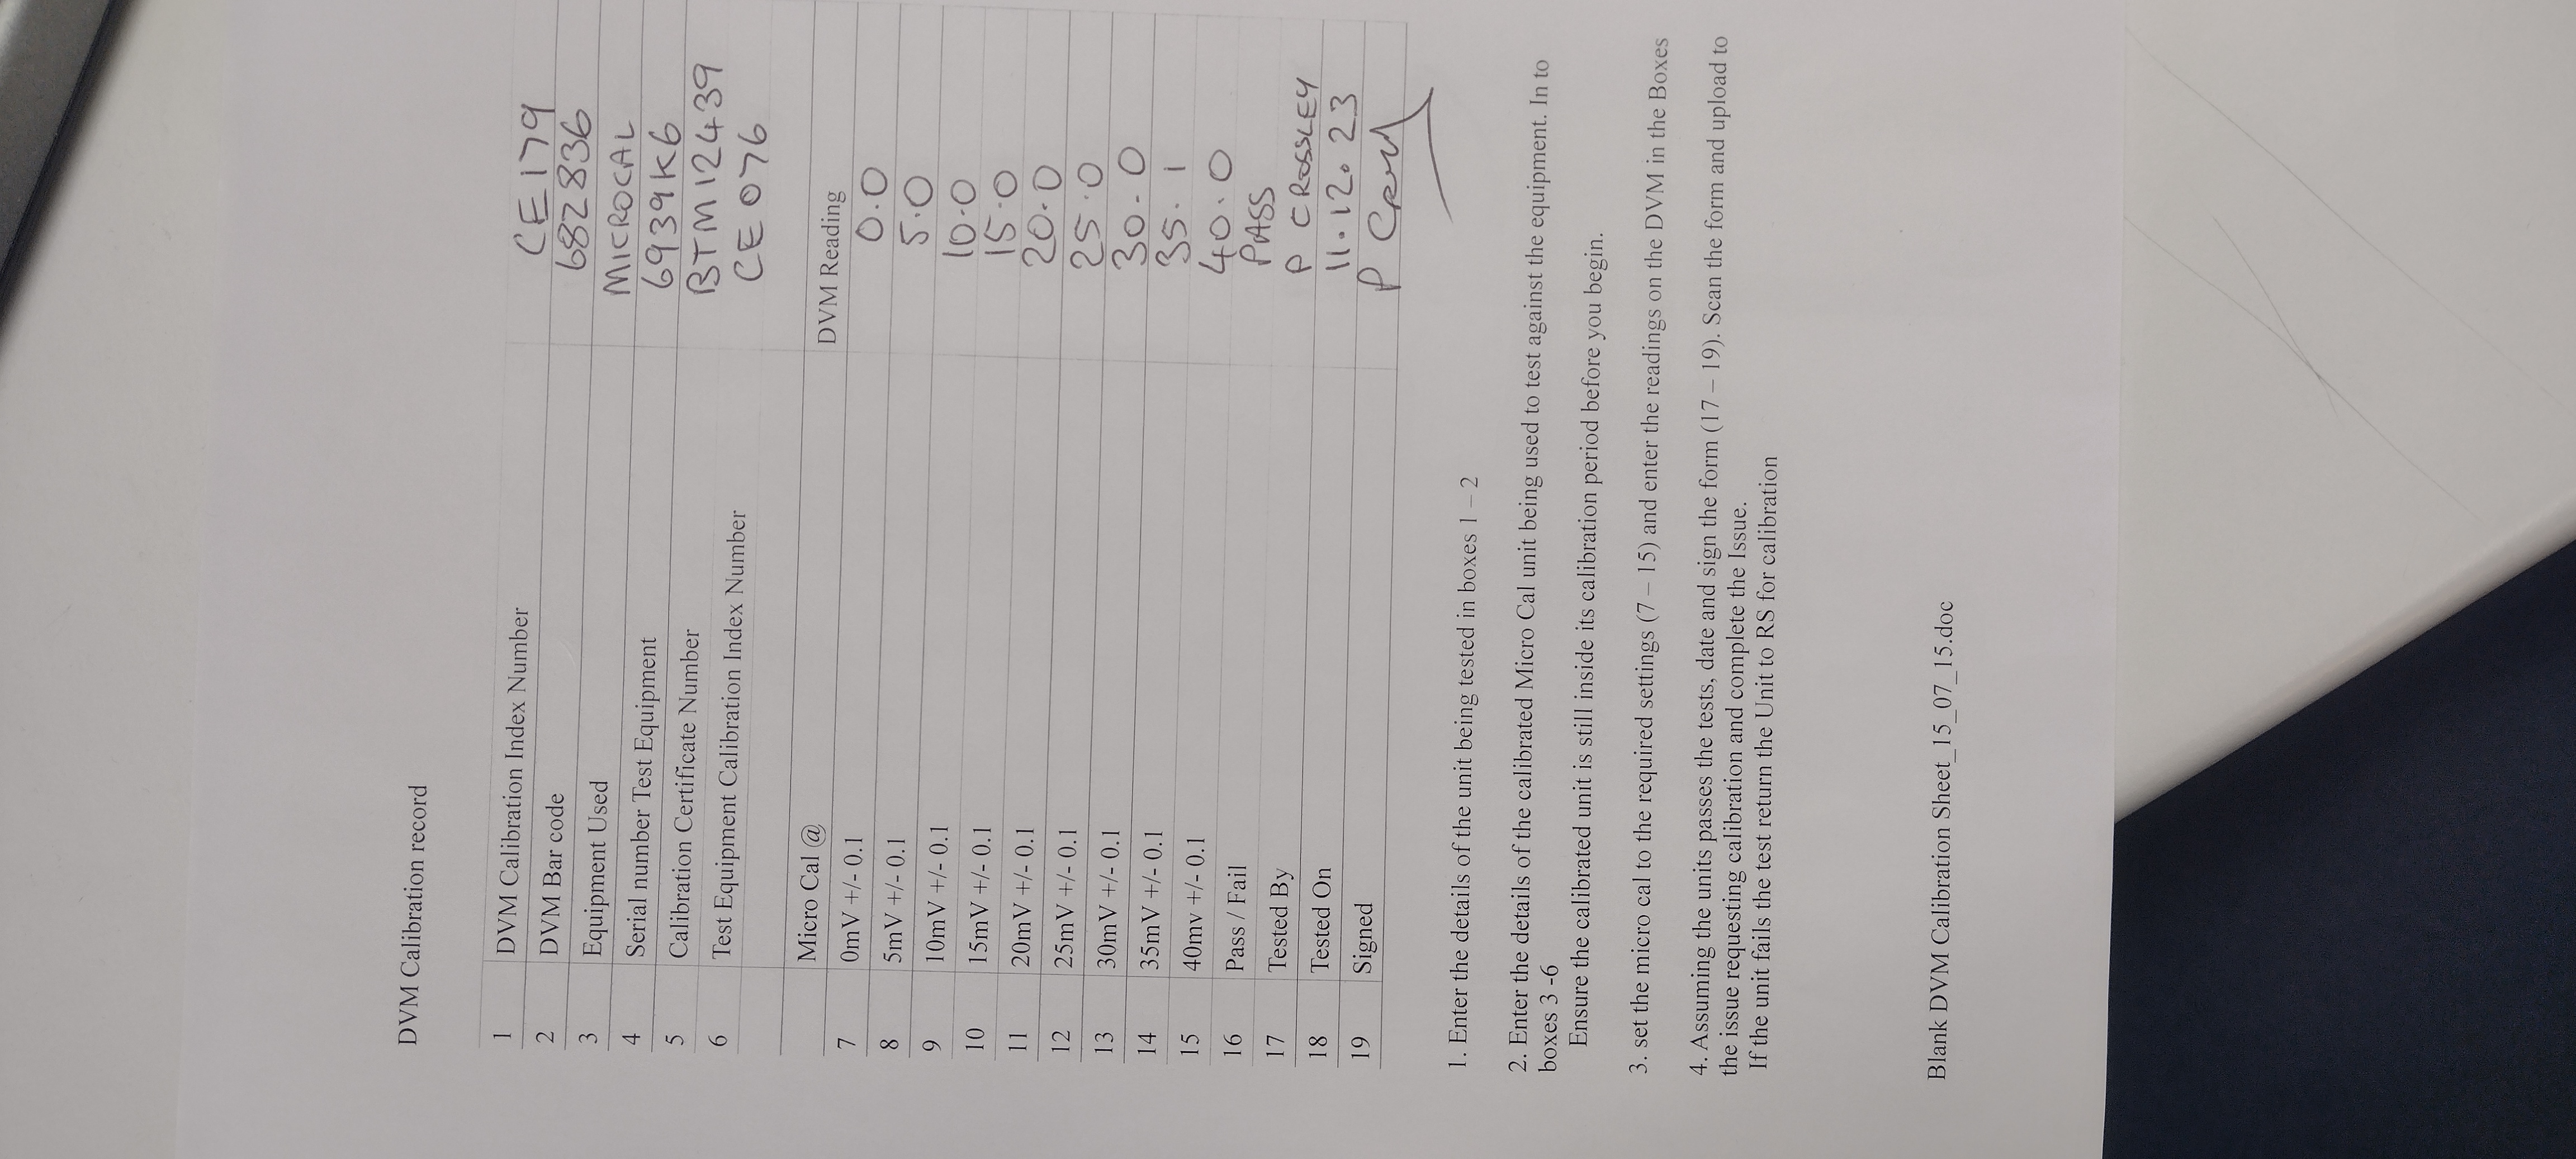 DVM Calibration record
1 DVM Calibration Index Number CE179
2 DVM Bar code 682836
3 Equipment Used MICROCAL
4 Serial number Test Equipment 6939K6
5 Calibration Certificate Number BTM12439
6 Test Equipment Calibration Index Number CE076
Micro Cal @ DVM Reading
7 0mV +/- 0.1 0.0
8 5mV +/- 0.1 5.0
9 10mV +/- 0.1 10.0
10 15mV +/- 0.1 15.0
11 20mV +/- 0.1 20.0
12 25mV +/- 0.1 25.0
13 30mV +/- 0.1 30.0
14 35mV +/- 0.1 35.1
15 40mv +/- 0.1 40.0
16 Pass / Fail PASS
17 Tested By P CROSSLEY
18 Tested On 11.12.23
19 Signed P
1. Enter the details of the unit being tested in boxes 1 – 2
2. Enter the details of the calibrated Micro Cal unit being used to test against the equipment. In to
boxes 3 -6
Ensure the calibrated unit is still inside its calibration period before you begin.
3. set the micro cal to the required settings (7 – 15) and enter the readings on the DVM in the Boxes
4. Assuming the units passes the tests, date and sign the form (17 – 19). Scan the form and upload to
the issue requesting calibration and complete the Issue.
If the unit fails the test return the Unit to RS for calibration
Blank DVM Calibration Sheet_15_07_15.doc